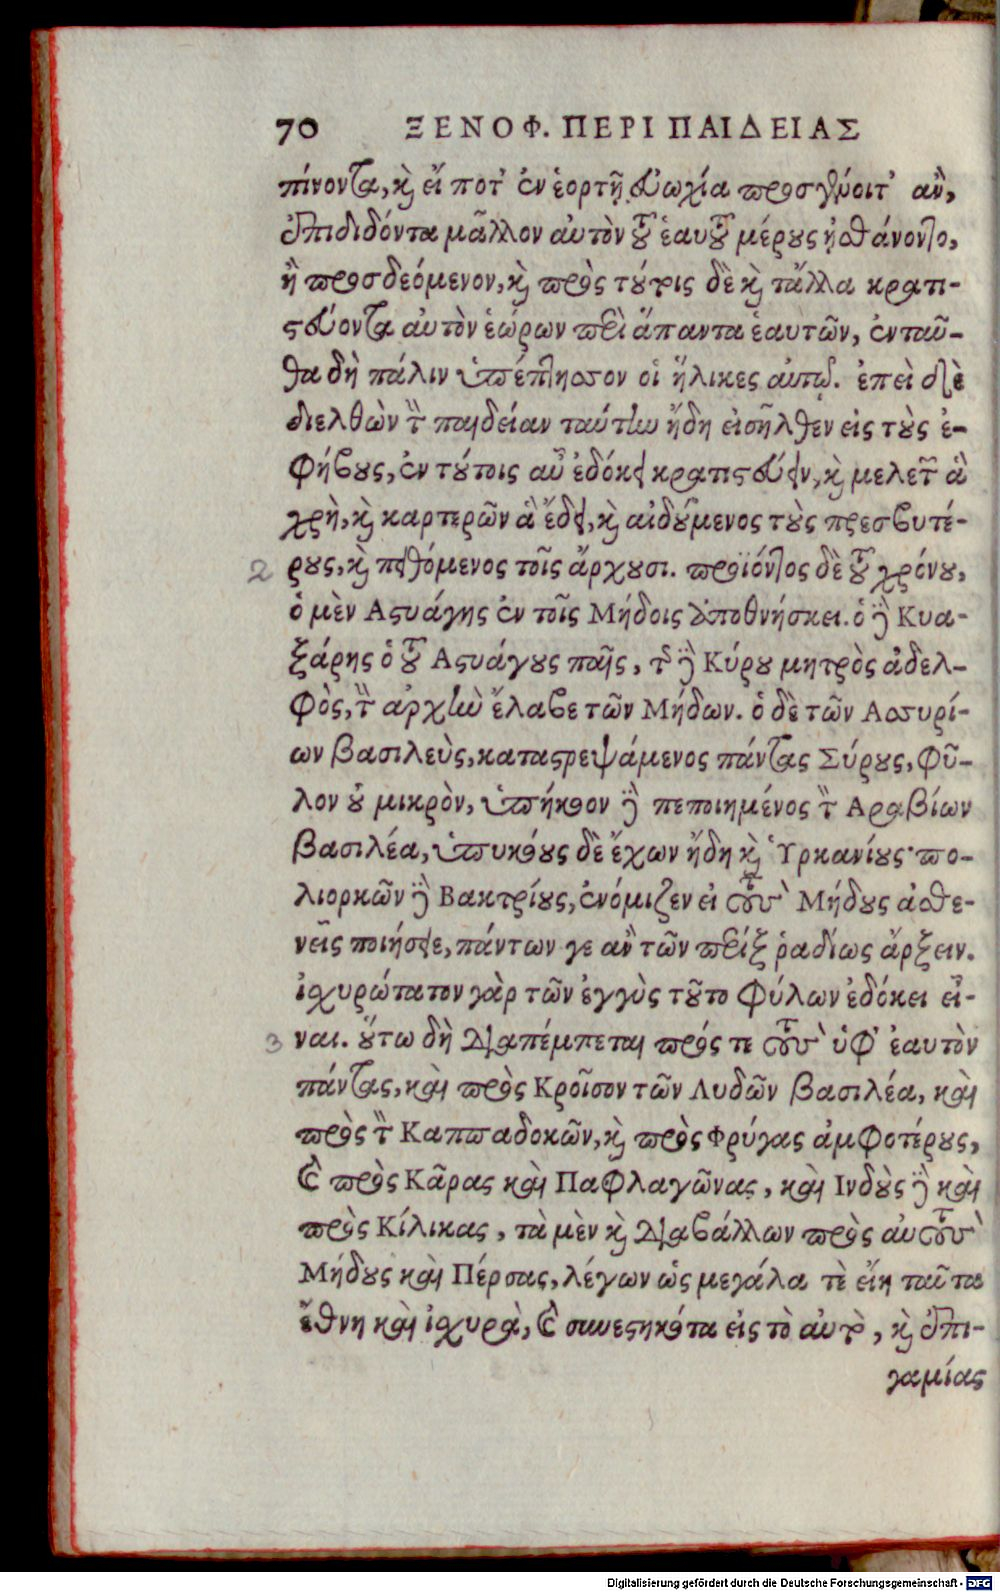 70 ΞΕΝΟΦ. ΠΕΡΙ ΠΑΙΔΕΙΑΣ
πίνοντα, καὶ εἴ ποτ' ἐν ἑορτῇ εὐωχία προσγένοιτ' ἂν,
ἐπιδιδόντα μᾶλλον αὐτὸν τοῦ ἑαυτοῦ μέρους ᾐσθάνοντο,
ἢ προσδεόμενον, καὶ πρὸς τούτοις δὲ καὶ τἄλλα κρατι-
στεύοντα αὐτὸν ἑώρων περὶ ἅπαντα ἑαυτῶν, ἐνταῦ-
θα δὴ πάλιν ὑπέπτησσον οἱ ἥλικες αὐτῷ. ἐπεὶ δὲ
διελθὼν τὴν παιδείαν ταύτην ἤδη εἰσῆλθεν εἰς τοὺς ἐ-
φήβους, ἐν τούτοις αὖ ἐδόκει κρατιστεύειν, καὶ μελετῶν ἃ
χρὴ, καὶ καρτερῶν ἃ ἔδει, καὶ αἰδούμενος τοὺς πρεσβυτέ-
2 ρους, καὶ πειθόμενος τοῖς ἄρχουσι. προϊόντος δὲ τοῦ χρόνου,
ὁ μὲν Αστυάγης ἐν τοῖς Μήδοις ἀποθνήσκει. ὁ δὲ Κυα-
ξάρης ὁ τοῦ Αστυάγους παῖς, τῆς δὲ Κύρου μητρὸς ἀδελ-
φὸς, τὴν ἀρχὴν ἔλαβε τῶν Μήδων. ὁ δὲ τῶν Ασσυρί-
ων βασιλεὺς, καταστρεψάμενος πάντας Σύρους, φῦ-
λον οὐ μικρὸν, ὑπήκοον δὲ πεποιημένος τὸν Αραβίων
βασιλέα, ὑπηκόους δὲ ἔχων ἤδη καὶ Ὑρκανίους· πο-
λιορκῶν δὲ Βακτρίους, ἐνόμιζεν εἰ τοὺς Μήδους ἀσθε-
νεῖς ποιήσειε, πάντων γε ἂν τῶν πέριξ ῥαδίως ἄρξειν.
ἰσχυρώτατον γὰρ τῶν ἐγγὺς τοῦτο φύλων ἐδόκει εἶ-
3 ναι. οὕτω δὴ διαπέμπεται πρός τε τοὺς ὑφ' ἑαυτὸν
πάντας, καὶ πρὸς Κροῖσον τῶν Λυδῶν βασιλέα, καὶ
πρὸς τὸν Καππαδοκῶν, καὶ πρὸς Φρύγας ἀμφοτέρους,
καὶ πρὸς Κᾶρας καὶ Παφλαγῶνας, καὶ Ινδοὺς δὲ καὶ
πρὸς Κίλικας, τὰ μὲν καὶ διαβάλλων πρὸς αὐτοὺς
Μήδους καὶ Πέρσας, λέγων ὡς μεγάλα τὲ εἴη ταῦτα
ἔθνη καὶ ἰσχυρὰ, καὶ συνεστηκότα εἰς τὸ αὐτὸ, καὶ ἐπι-
γαμίας
Digitalisierung gefördert durch die Deutsche Forschungsgemeinschaft - DFG